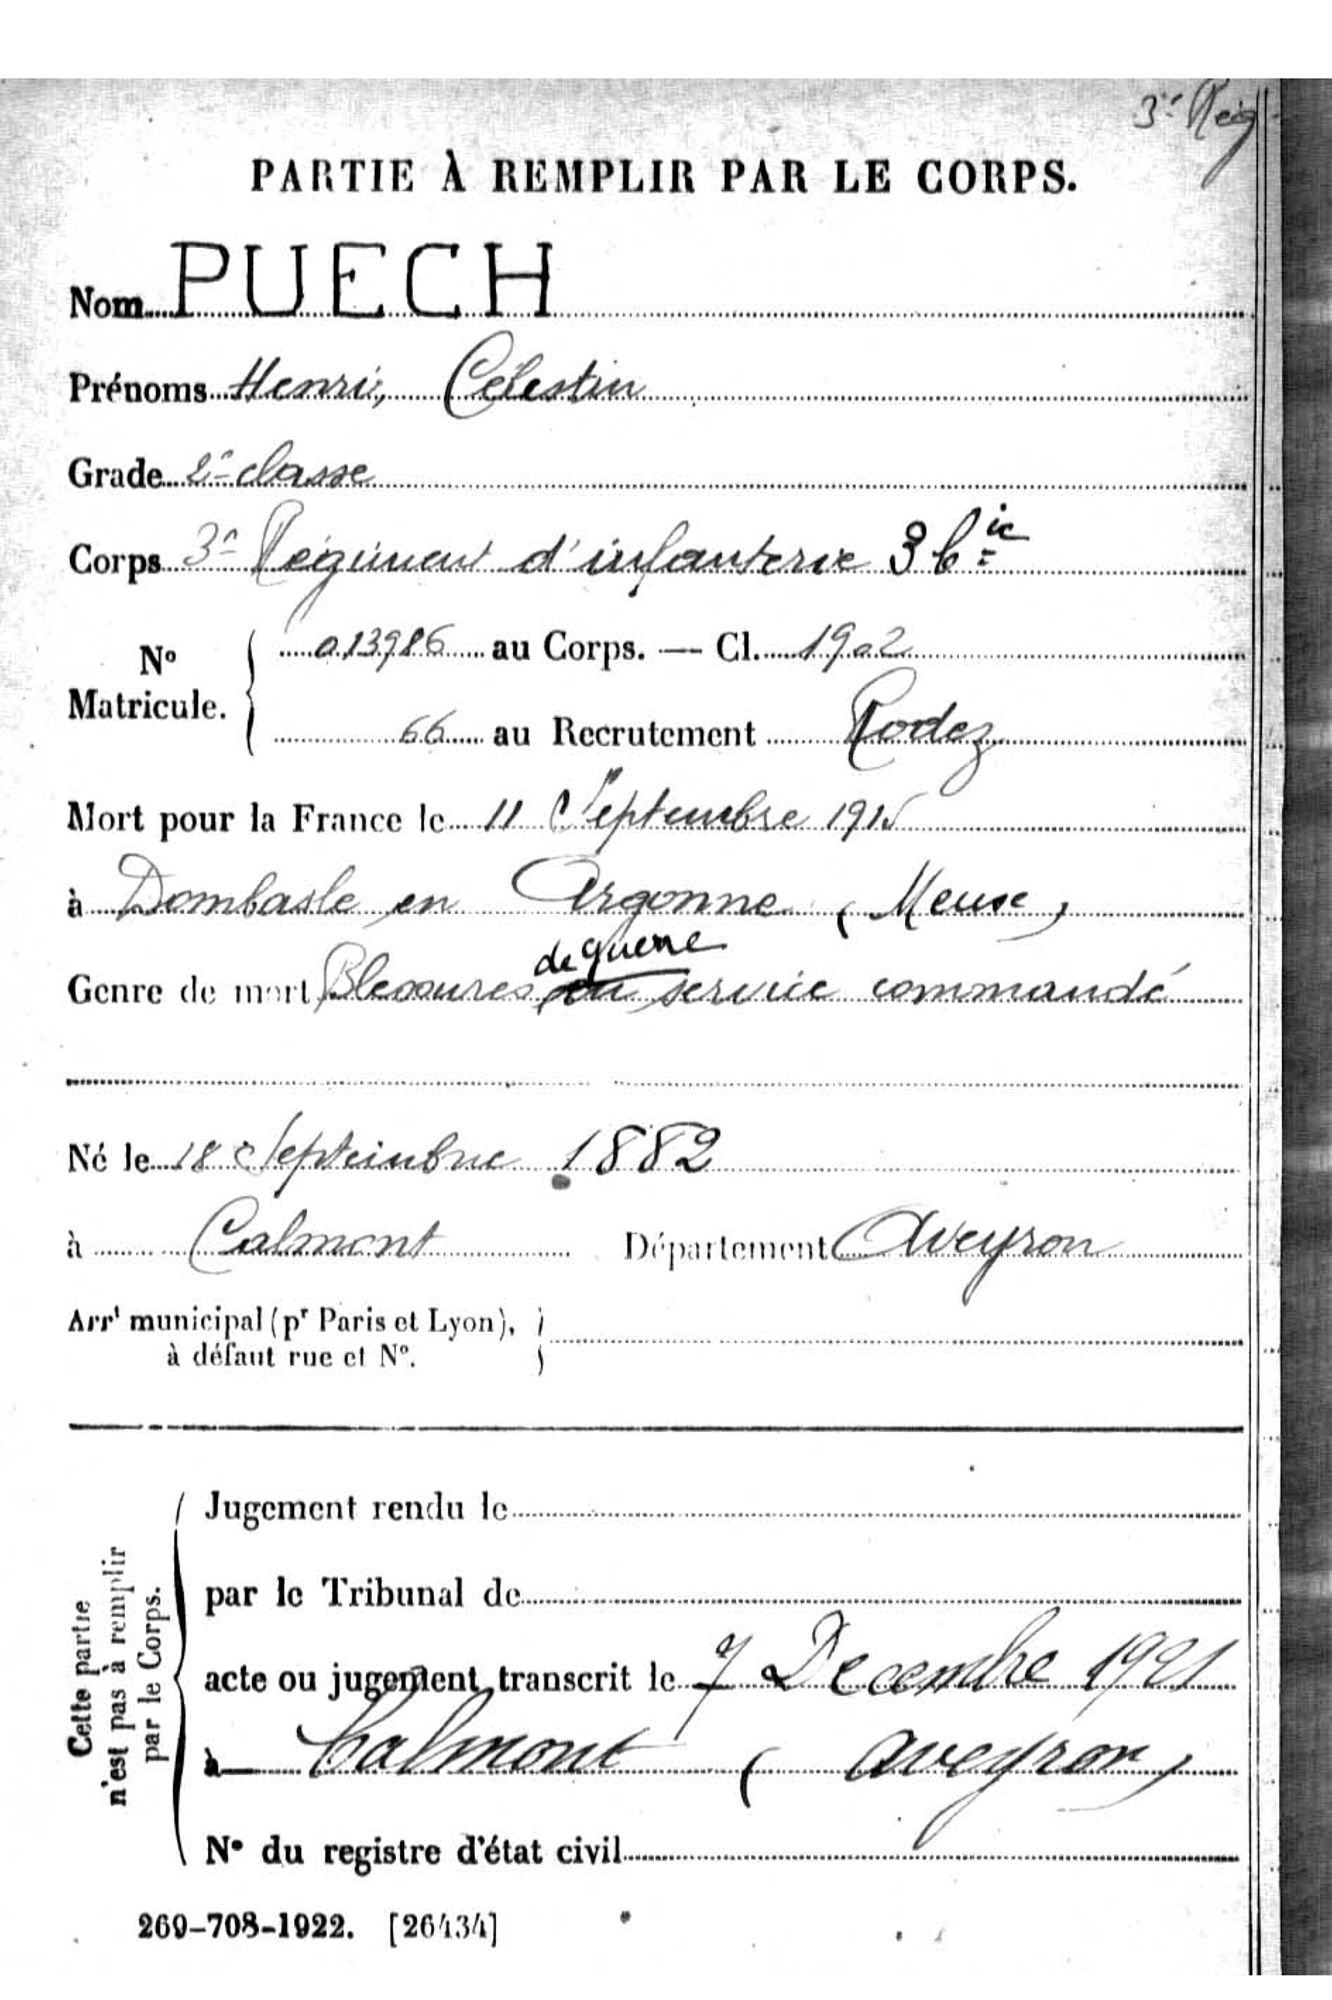 3e Rég
PARTIE À REMPLIR PAR LE CORPS.
Nom PUECH
Prénoms Henri, Célestin
Grade 2e classe
Corps 3e Régiment d'infanterie 3 bie
No Matricule. 013986 au Corps. — Cl. 1902
66 au Recrutement Rodez
Mort pour la France le 11 Septembre 1915
à Dombasle en Argonne (Meuse)
de guerre
Genre de mort Blessures en service commandé
Né le 18 Septembre 1882
à Calmont Département Aveyron
Arrt municipal (pr Paris et Lyon),
à défaut rue et No.
Cette partie
n'est pas à remplir
par le Corps.
Jugement rendu le
par le Tribunal de
acte ou jugement transcrit le 7 Decembre 1921
à Calmont (Aveyron)
No du registre d'état civil
269-708-1922. [26434]